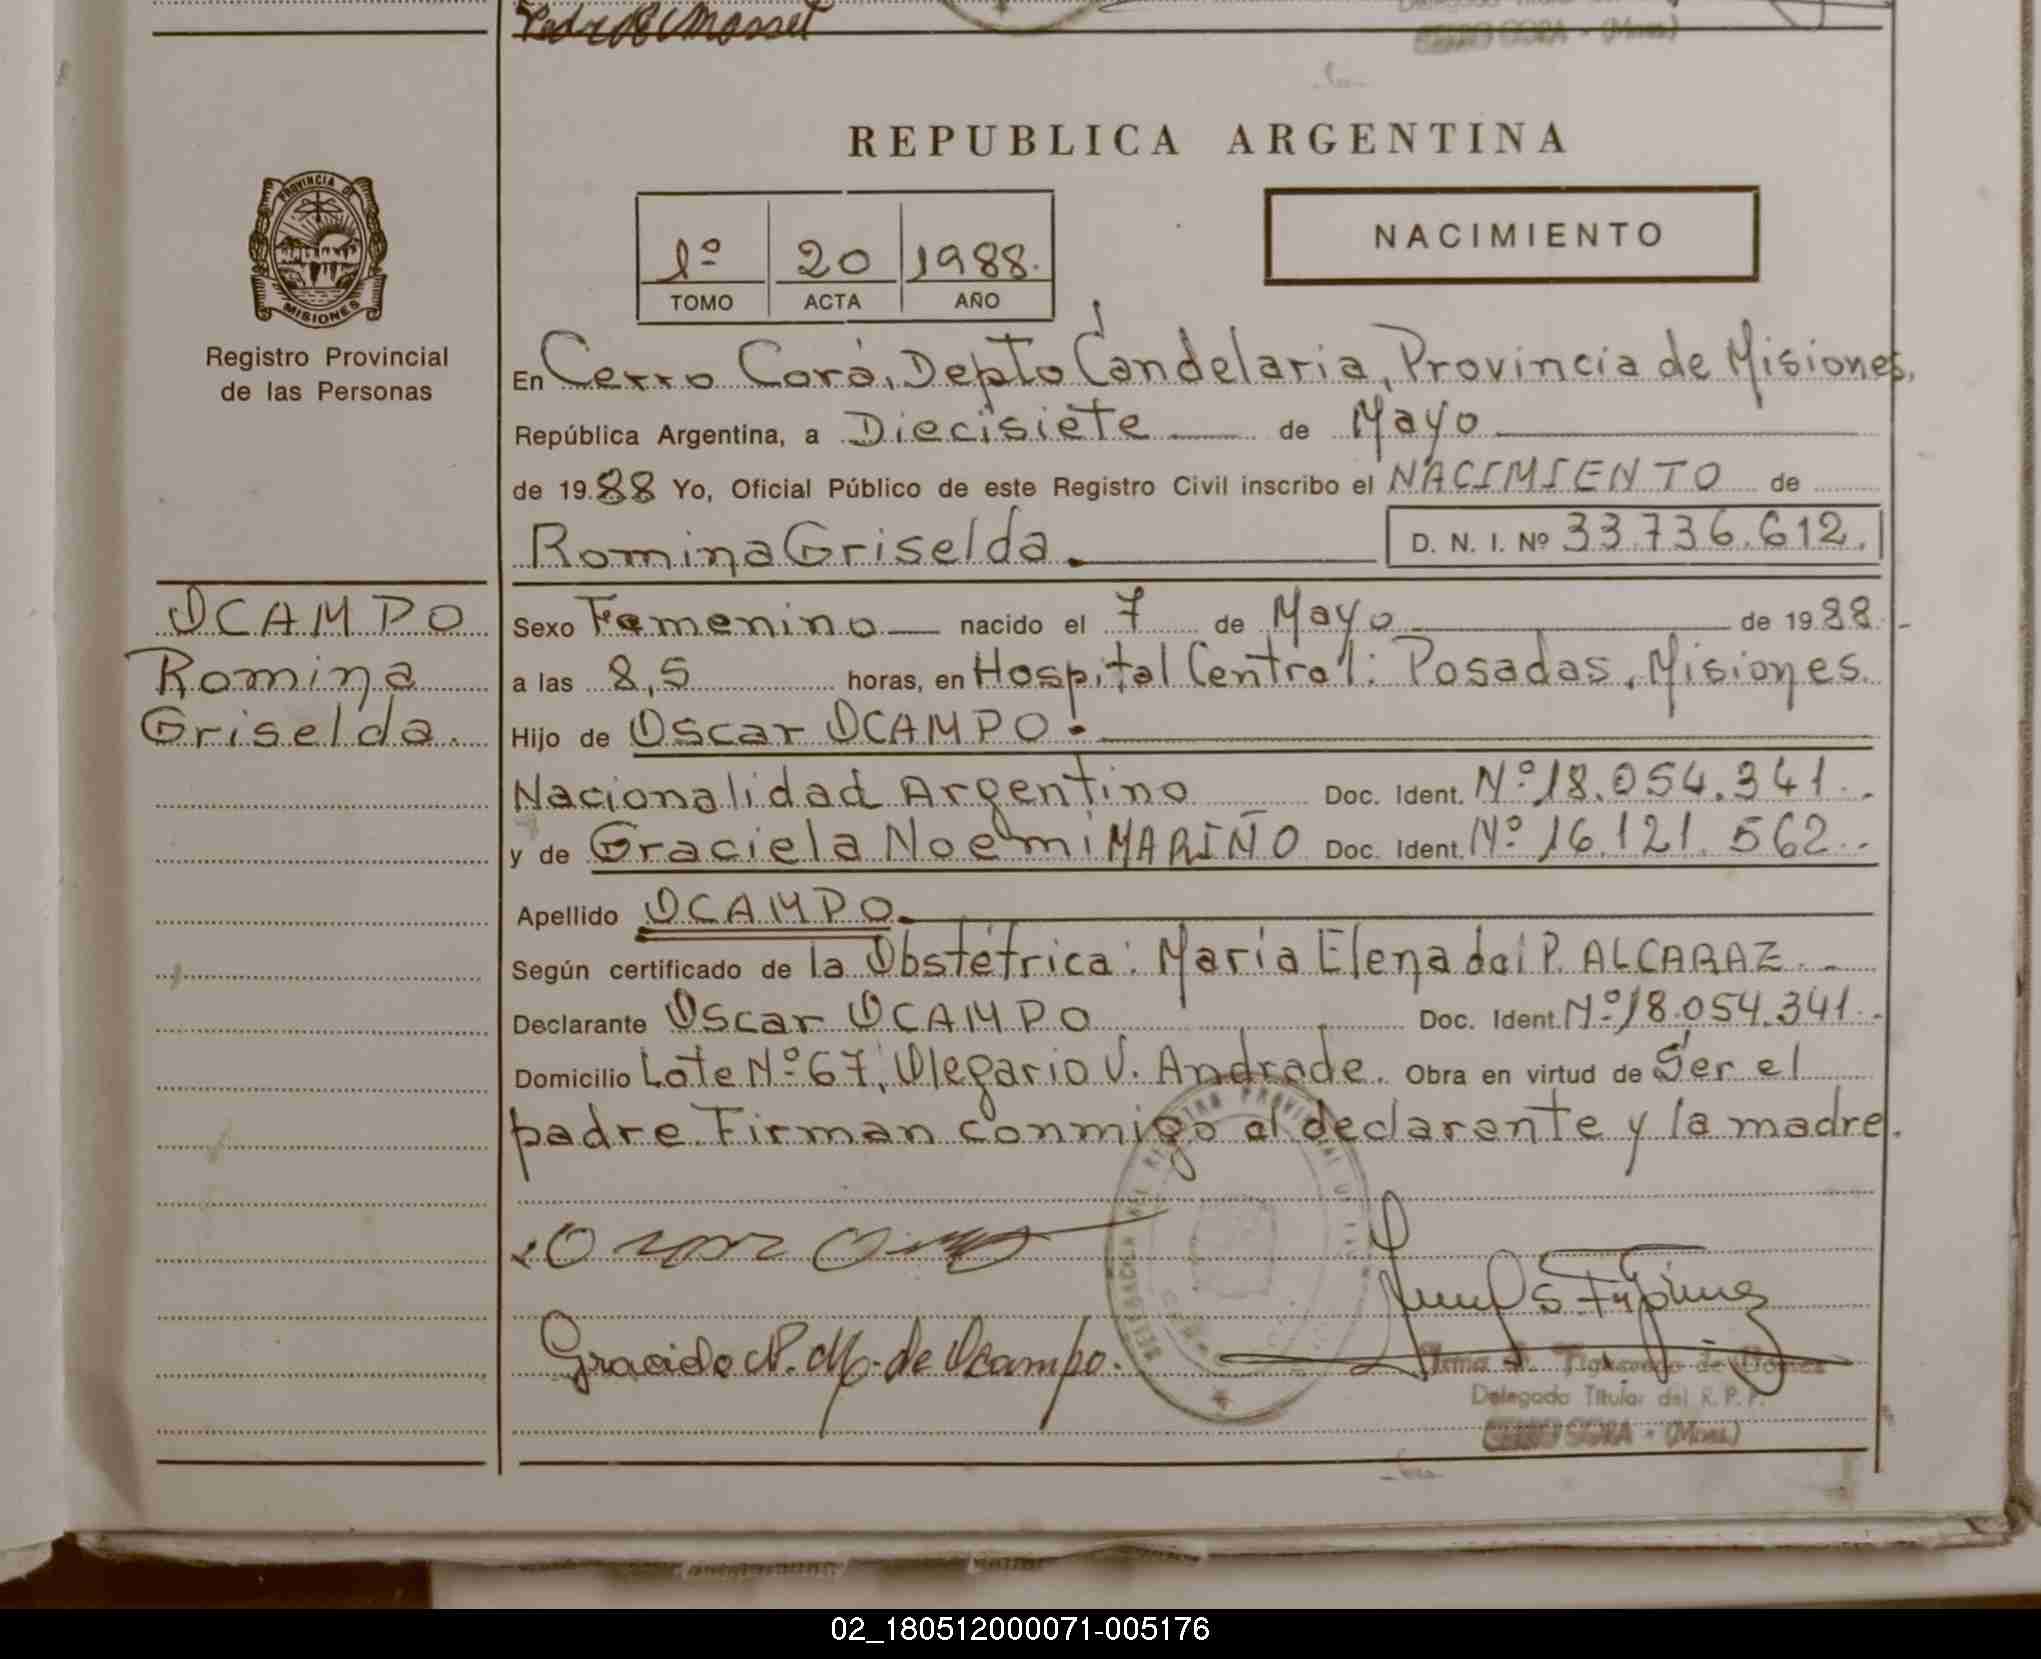 REPUBLICA ARGENTINA
PROVINCIA DE
MISIONES
Registro Provincial
de las Personas
1º 20 1988.
TOMO ACTA AÑO
NACIMIENTO
En Cerro Corá, Depto Candelaria, Provincia de Misiones,
República Argentina, a Diecisiete de Mayo
de 1988 Yo, Oficial Público de este Registro Civil inscribo el NACIMIENTO de
Romina Griselda. D. N. I. Nº 33.736.612.
OCAMPO
Romina
Griselda.
Sexo Femenino nacido el 7 de Mayo de 1988.-
a las 8,5 horas, en Hospital Central: Posadas, Misiones.
Hijo de Oscar OCAMPO.
Nacionalidad Argentino Doc. Ident. Nº 18.054.341.
y de Graciela Noemi MARIÑO Doc. Ident. Nº 16.121.562.
Apellido OCAMPO.
Según certificado de la Obstétrica: María Elena del P. ALCARAZ.-
Declarante Oscar OCAMPO Doc. Ident. Nº 18.054.341.
Domicilio Lote Nº 67, Olegario V. Andrade. Obra en virtud de Ser el
padre. Firman conmigo el declarante y la madre.
REGISTRO PROVINCIAL
Graciela N. M. de Ocampo.
Delegado Titular del R. P. P.
CORA - (Mnes.)
02_180512000071-005176